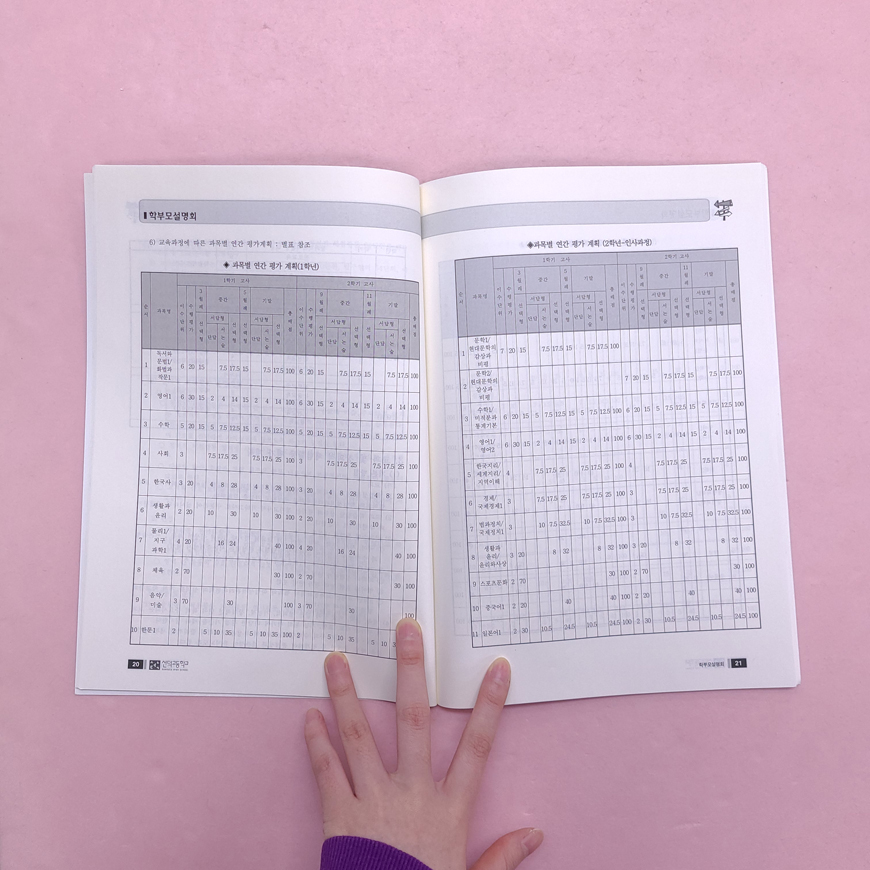 학부모설명회
6) 교육과정에 따른 과목별 연간 평가계획 : 별표 참조
◈ 과목별 연간 평가 계획(1학년)
1학기 고사 2학기 고사
순서 과목명 이수단위 수행평가 3월례 중간 기말 총배점 이수단위 수행평가 9월례 중간 11월례 기말 총배점
서답형 서답형 서답형 서답형
선택형 단답 서논술 선택형 단답 서논술
1 독서와문법1/화법과작문1 6 20 15 7.5 17.5 15 7.5 17.5 100 6 20 15 7.5 17.5 15 7.5 17.5 100
2 영어1 6 30 15 2 4 14 15 2 4 14 100 6 30 15 2 4 14 15 2 4 14 100
3 수학 5 20 15 5 7.5 12.5 15 5 7.5 12.5 100 5 20 15 5 7.5 12.5 15 5 7.5 12.5 100
4 사회 3 7.5 17.5 25 7.5 17.5 25 100 3 7.5 17.5 25 7.5 17.5 25 100
5 한국사 3 20 4 8 28 4 8 28 100 3 20 4 8 28 4 8 28 100
6 생활과윤리 2 20 10 30 10 30 100 2 20 10 30 10 30 100
7 물리1/지구과학1 4 20 16 24 40 100 4 20 16 24 40 100
8 체육 2 70 30 100 2 70 30 100
9 음악/미술 3 70 30 100 3 70 30 100
10 한문1 2 5 10 35 5 10 35 100 2 5 10 35 5 10
20 선덕고등학교
◈과목별 연간 평가 계획 (2학년-인사과정)
1학기 고사 2학기 고사
순서 과목명 이수단위 수행평가 3월례 중간 5월례 기말 총배점 이수단위 수행평가 9월례 중간 11월례 기말 총배점
서답형 서답형 서답형 서답형
선택형 단답 서논술 선택형 단답 서논술
1 문학1/현대문학의감상과비평 7 20 15 7.5 17.5 15 7.5 17.5 100
2 문학2/현대문학의감상과비평 7 20 15 7.5 17.5 15 7.5 17.5 100
3 수학1/미적분과통계기본 6 20 15 5 7.5 12.5 15 5 7.5 12.5 100 6 20 15 5 7.5 12.5 15 5 7.5 12.5 100
4 영어1/영어2 6 30 15 2 4 14 15 2 4 14 100 6 30 15 2 4 14 15 2 4 14 100
5 한국지리/세계지리/지역이해 4 7.5 17.5 25 7.5 17.5 25 100 4 7.5 17.5 25 7.5 17.5 25 100
6 경제/국제경제1 3 7.5 17.5 25 7.5 17.5 25 100 3 7.5 17.5 25 7.5 17.5 25 100
7 법과정치/국제정치1 3 10 7.5 32.5 10 7.5 32.5 100 3 10 7.5 32.5 10 7.5 32.5 100
8 생활과윤리/윤리와사상 3 20 8 32 8 32 100 3 20 8 32 8 32 100
9 스포츠문화 2 70 30 100 2 70 30 100
10 중국어1 2 20 40 40 100 2 20 40 40 100
11 일본어1 2 30 10.5 24.5 10.5 24.5 100 2 30 10.5 24.5 10.5 24.5 100
학부모설명회 21